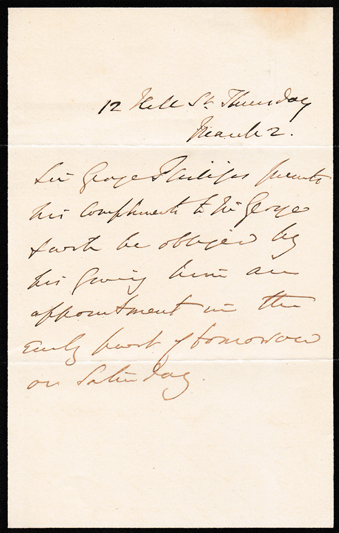 12 Hill St. Thursday
March 2.
Sir George Philips presents
his compliments to Sir George
& wth be obliged by
his giving him an
appointment in the
Early part of tomorrow
or Saturday.